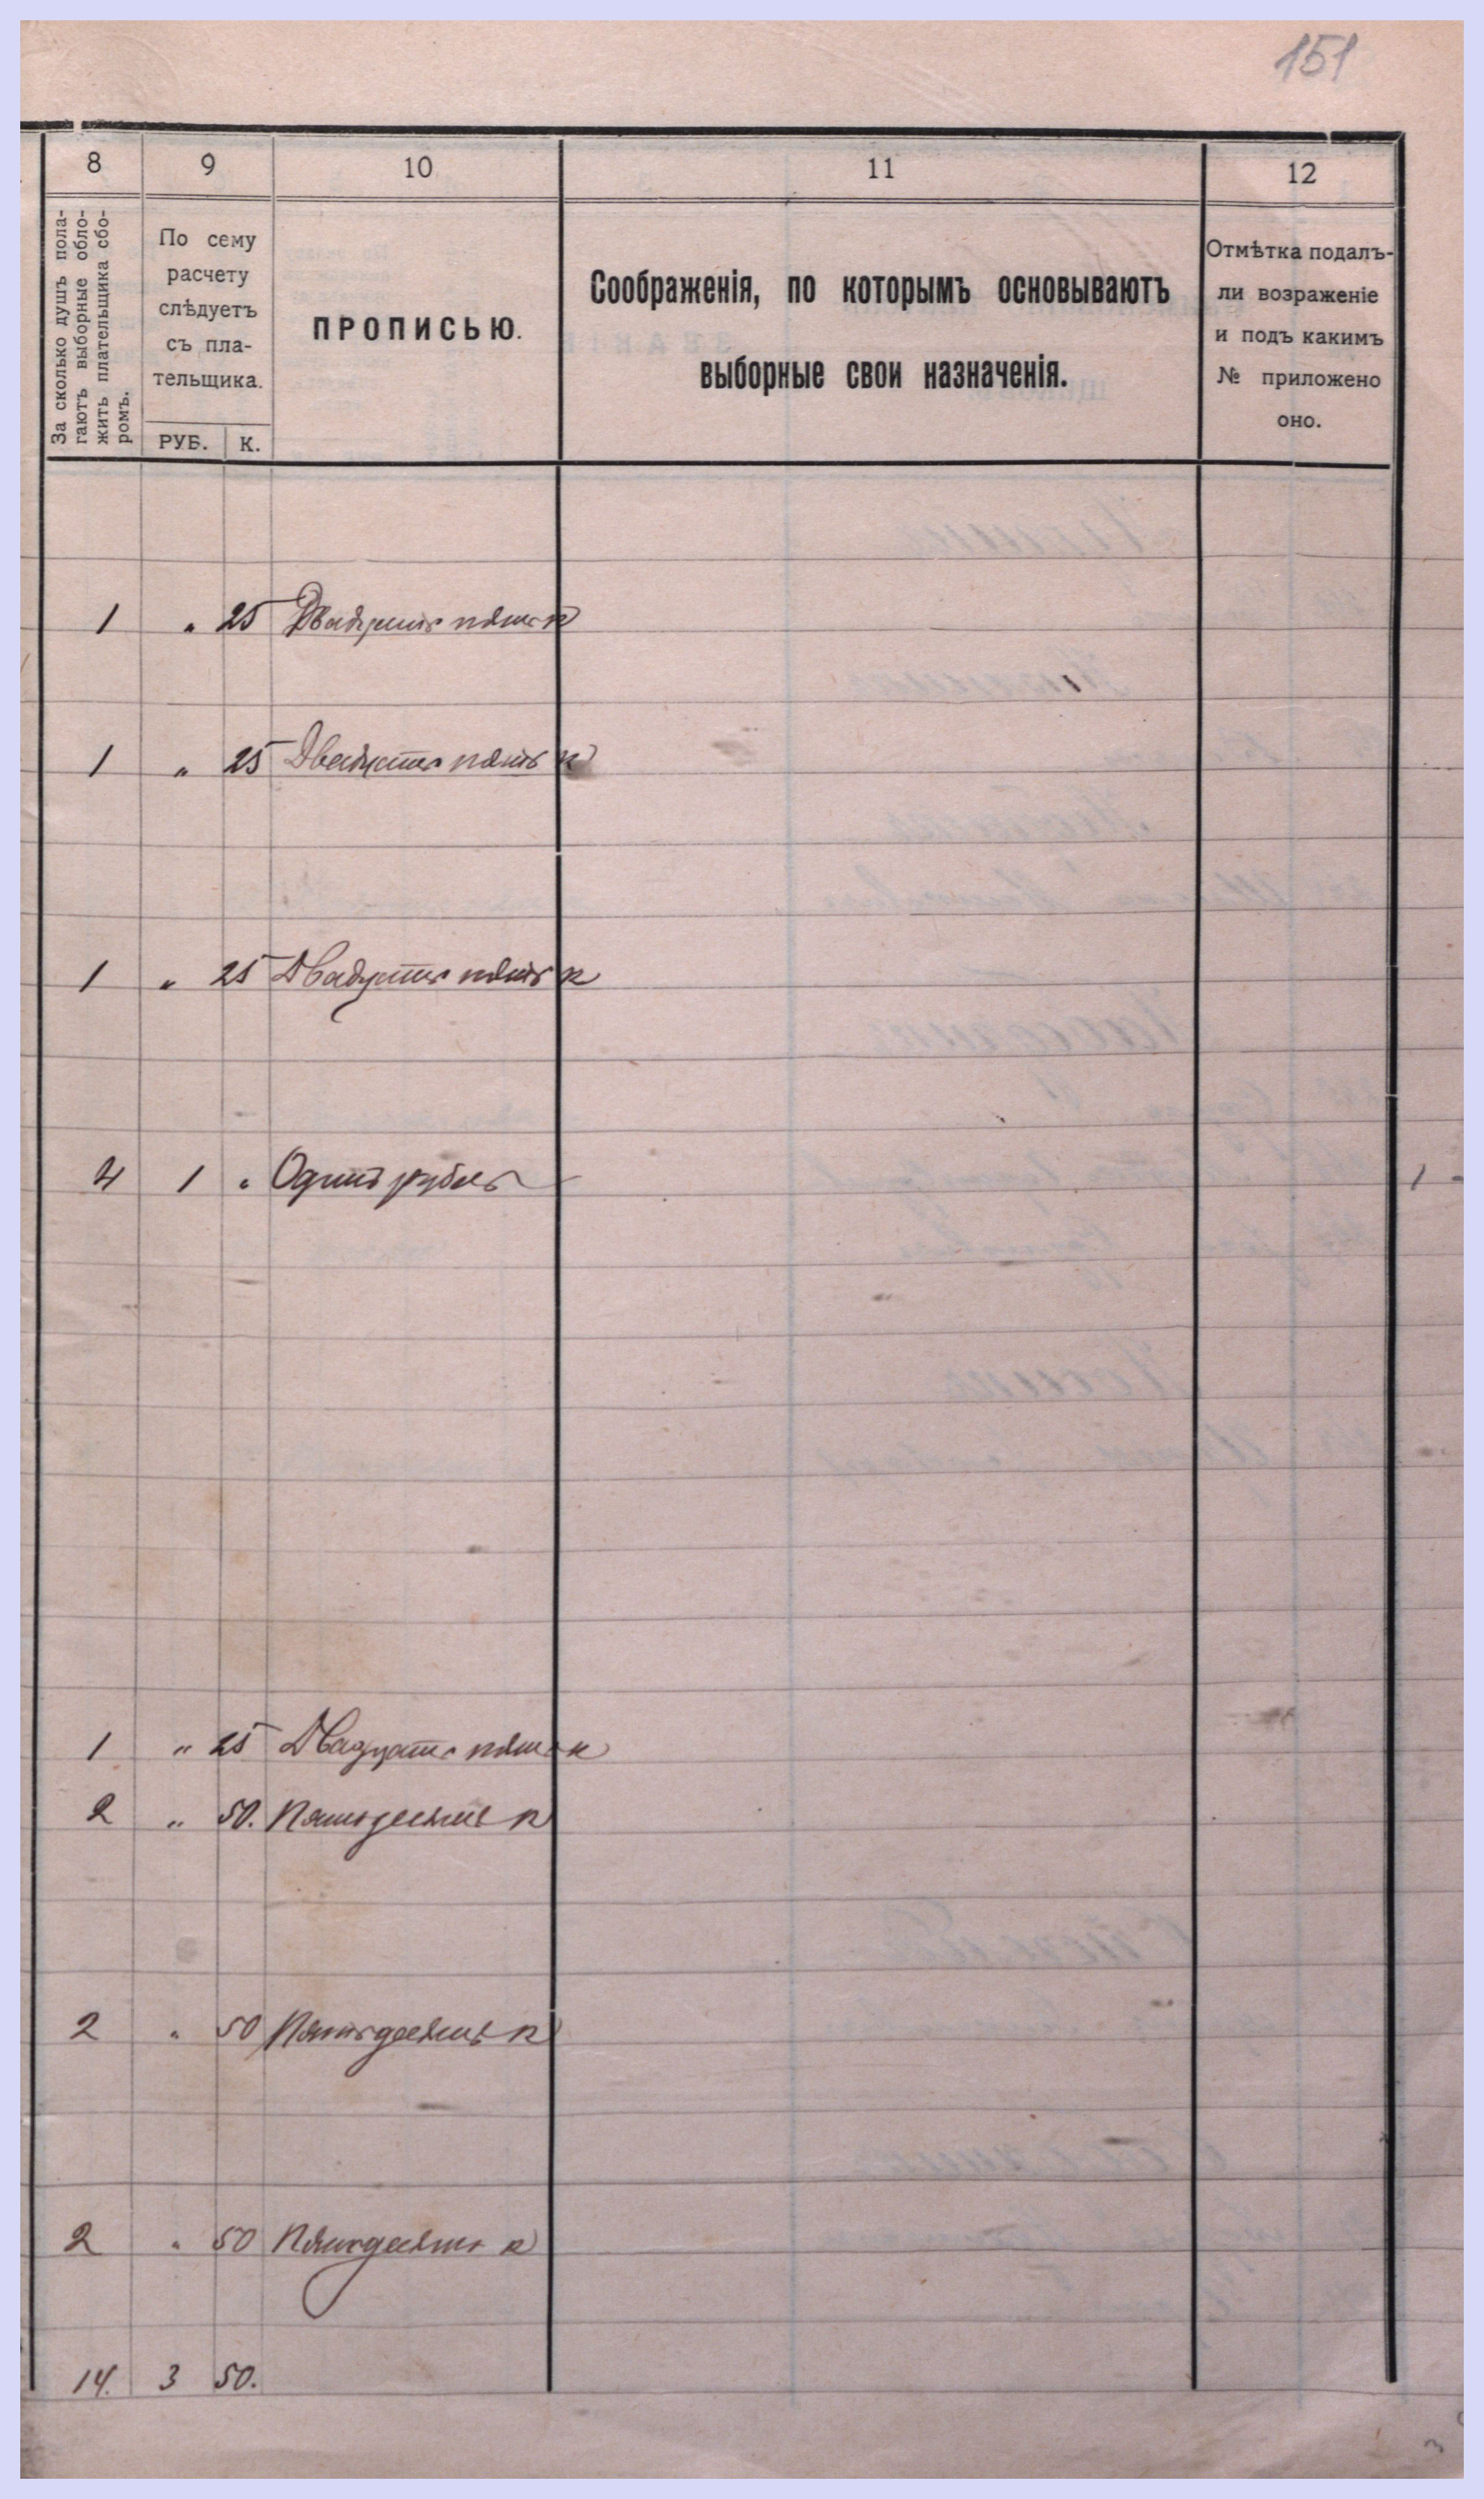 151
8 9 10 11 12
За сколько душъ пола-
гаютъ выборные обло-
жить плательщика сбо-
ромъ.
По сему
расчету
слѣдуетъ
съ пла-
тельщика.
РУБ. К.
ПРОПИСЬЮ.
Соображенія, по которымъ основываютъ
выборные свои назначенія.
Отмѣтка подалъ-
ли возраженіе
и подъ какимъ
№ приложено
оно.
1 " 25 Двадцать пять к
1 " 25 Двадцать пять к
1 " 25 Двадцать пять к
4 1 " Одинъ рубль
1 " 25 Двадцать пять к
2 " 50. Пятьдесятъ к
2 " 50 Пятьдесятъ к
2 " 50 Пятьдесятъ к
14. 3 50.